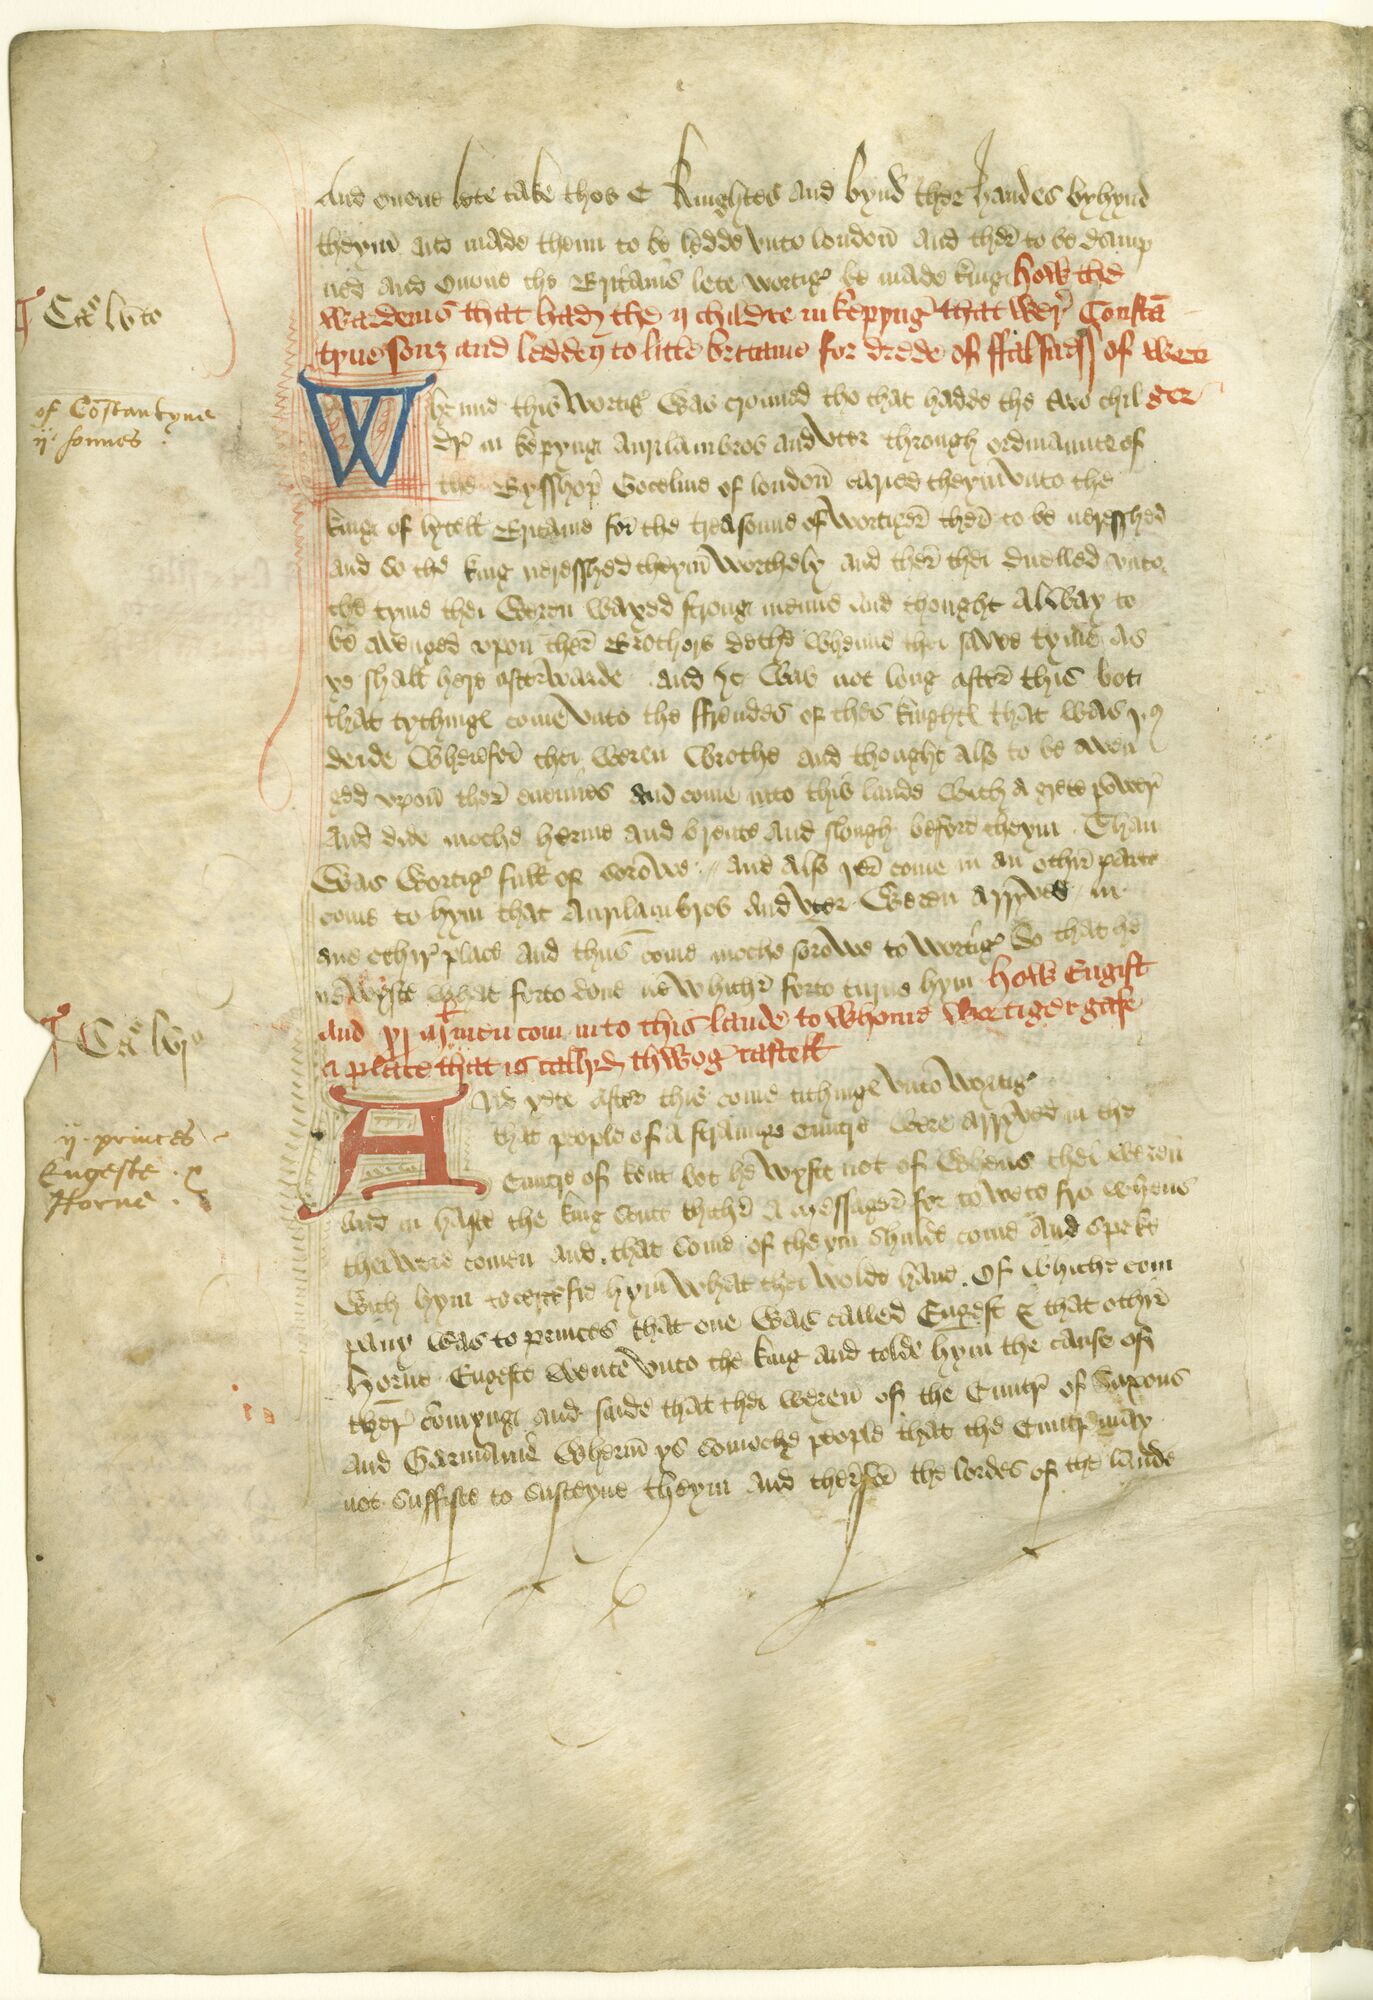 And onone lete take thos C knightes and bynd ther handes byhynd
theym and made theim to be ledde vnto london and ther to be damp
ned And onone the Britains lete vortiger be made king How the
wardens that had the ij childre in kepyng that wer Constan
tyne sonz and ledden to litle bretaine for drede of falshed of vorti
ger
Ca lvto
of Costantyne
ij sonnes
Whenne this Vortiger was crouned tho that hadde the two chil
dre in kepyng Aurilambros and Vter through ordinaunce of
the Bysshop Goceline of london caried theym vnto the
king of lytell Britaine for the treasoune of vortiger ther to be norysshed
And so the king noresshed theym worthely and ther thei duelled vnto
the tyme thei weren waxed strong menne and thought alway to
be avenged vpon ther Brothers dethe whenne thei sawe tyme as
ye shall here afterwarde And it was not long after this bot
that tythinge come vnto the ffrendes of thes knightes that was
dede Wherefor thei weren wrothe and thought also to be aven
ged vpon ther enemies And come into this lande with a grete power
And dide moche herme and brente and slough before theym Than
was Vortiger full of sorowe And also ther come in an other parte
come to hym that Aurilambros And Vter weren arryved in
ane othir place and thus come moche sorowe to Vortiger So that he
newyste what forto done newhither forto turne hym How Engist
And xj m men com into this lande to whome Vortiger gafe
a place that is callyd thwog castell
Ca lvjo
And yete after this come tithinge vnto Vortiger
that people of a straunge cuntre were arryved in the
Cuntre of kent bot he wyste not of whens thei weren
And in haste the king sente thider a messager for to wete fro whens
thei were comen and that some of theym shulde come and speke
ij princes
Engeste
Horne
with hym to certefie hym what thei wolde have Of whiche com
pany was to princes that one was called Engest & that othir
Horne Engeste wente vnto the king and tolde hym the cause of
ther comyng and saide that thei weren of the Cuntre of Saxons
and Germanie wherin ys so moche people that the Cuntre may
not suffise to susteyne theym And therfor the lordes of the lande